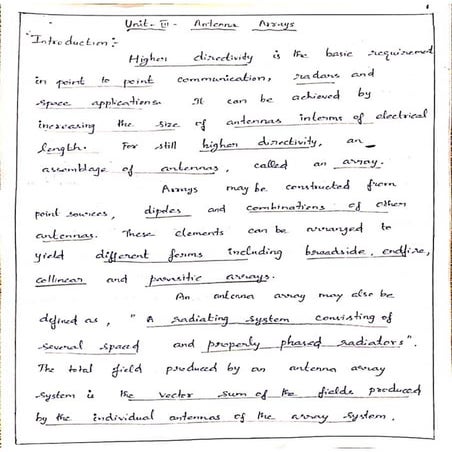 Unit-III- Antenna Arrays
Introduction:-
Higher directivity is the basic requirement
in point to point communication, radars and
space applications. It can be achieved by
increasing the size of antennas interms of electrical
length. For still higher directivity, an
assemblage of antennas, called an array.
Arrays may be constructed from
point sources, dipoles and combinations of other
antennas. These elements can be arranged to
yield different forms including broadside, endfire,
collinear and parasitic arrays.
An antenna array may also be
defined as, "A radiating system consisting of
several spaced and properly phased radiators".
The total field produced by an antenna array
system is the vector sum of the fields produced
by the individual antennas of the array system.